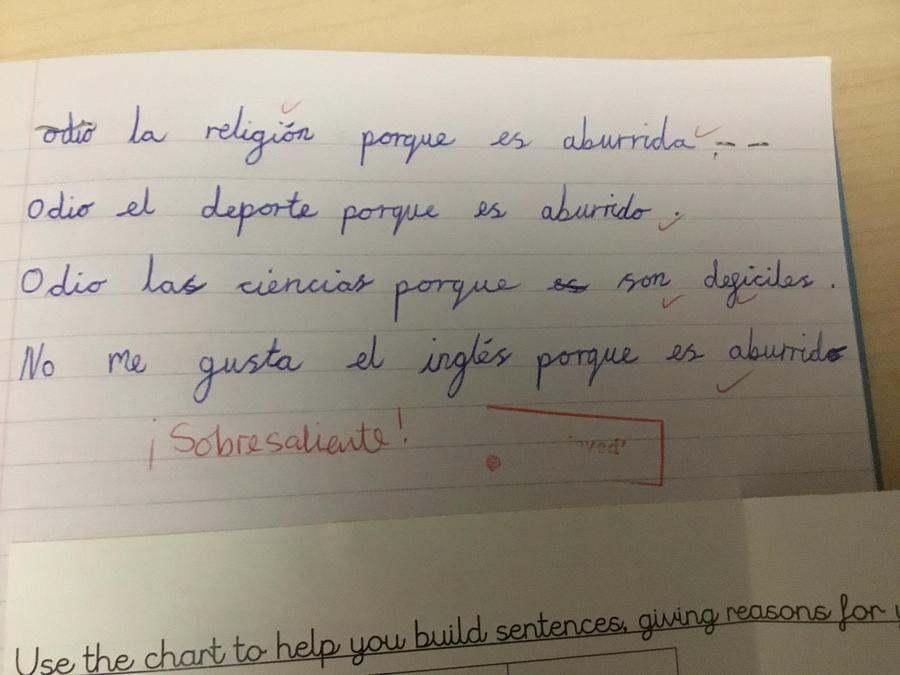 odio la religión porque es aburrida.
Odio el deporte porque es aburrido.
Odio las ciencias porque es son dificiles.
No me gusta el inglés porque es aburrido
¡Sobresaliente!
Use the chart to help you build sentences, giving reasons for